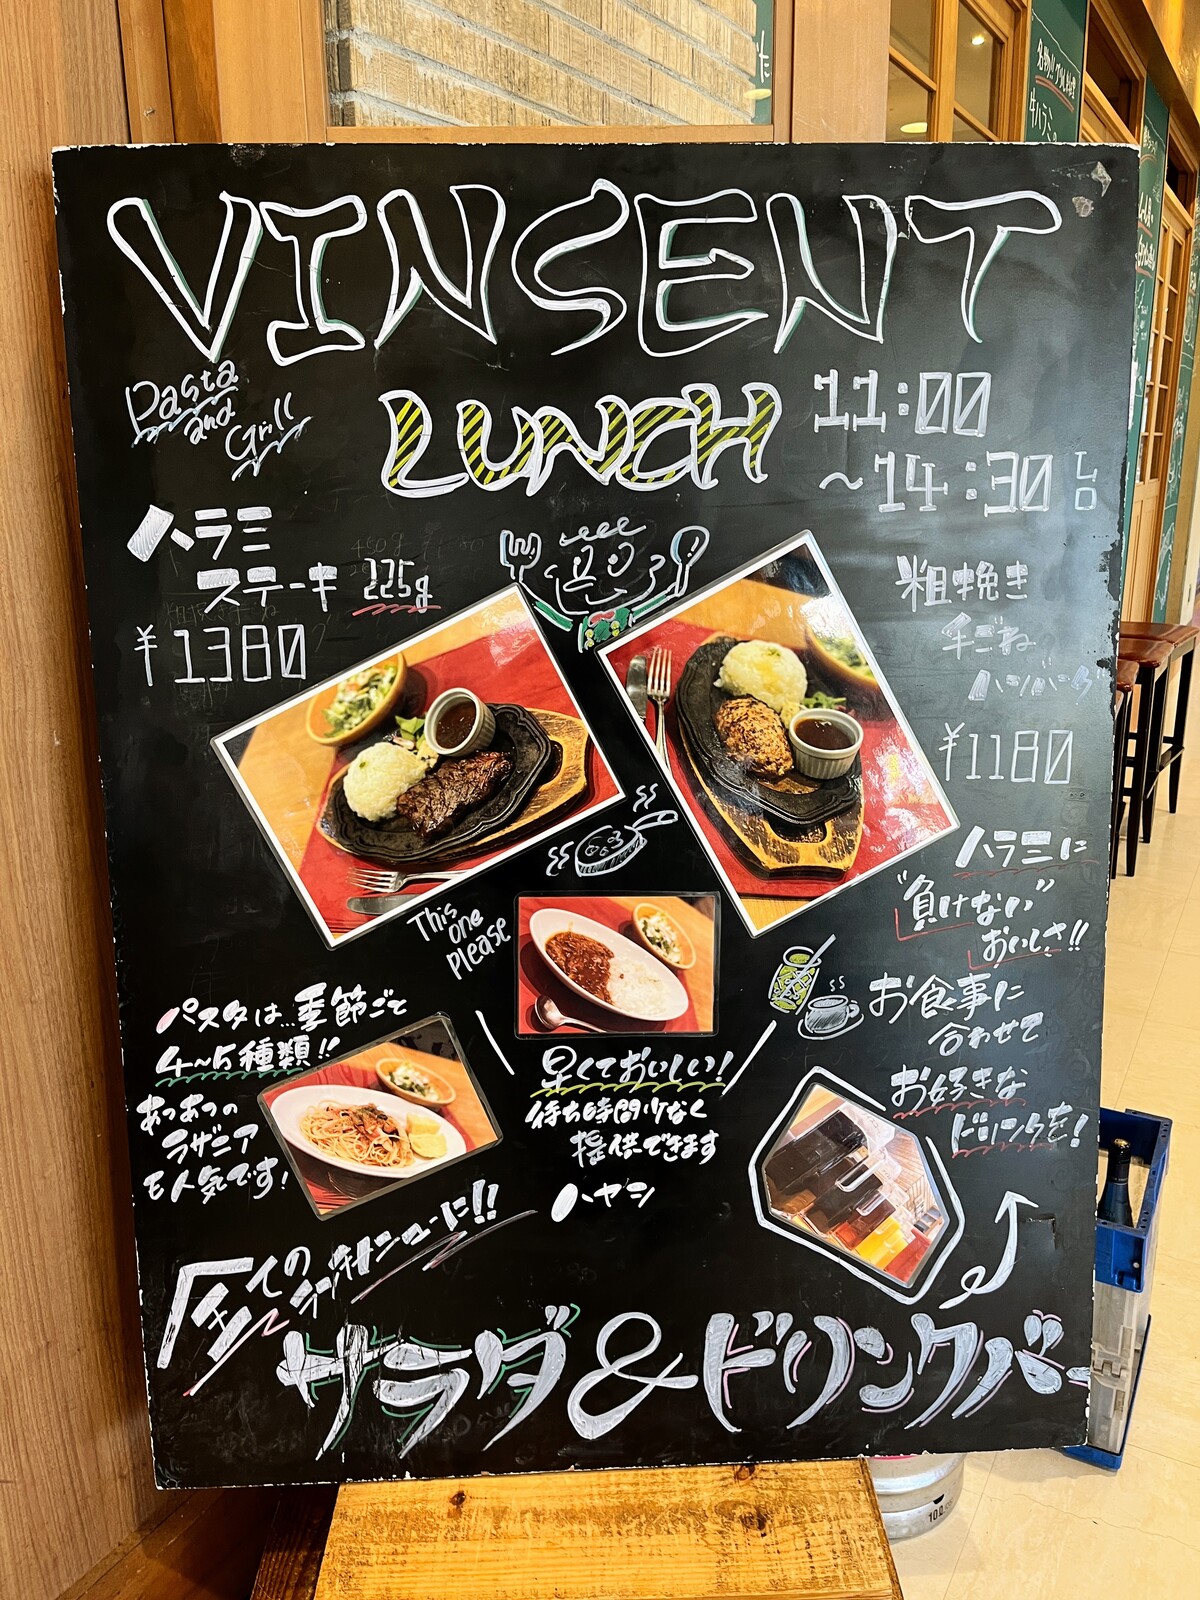 VINSENT
Pasta
and
Grill
LUNCH
11:00
~14:30 LO
ハラミ
ステーキ 225g
¥1380
粗挽き
手ごね
ハンバーグ
¥1180
ハラミに
"負けない"
おいしさ!!
This
one
Please
お食事に
合わせて
お好きな
ドリンクを!
パスタは…季節ごと
4~5種類!!
あつあつの
ラザニア
も人気です!
早くておいしい!
待ち時間少なく
提供できます
ハヤシ
全ての
ランチメニューに!!
サラダ&ドリンクバー
名物!!
牛ハラミの